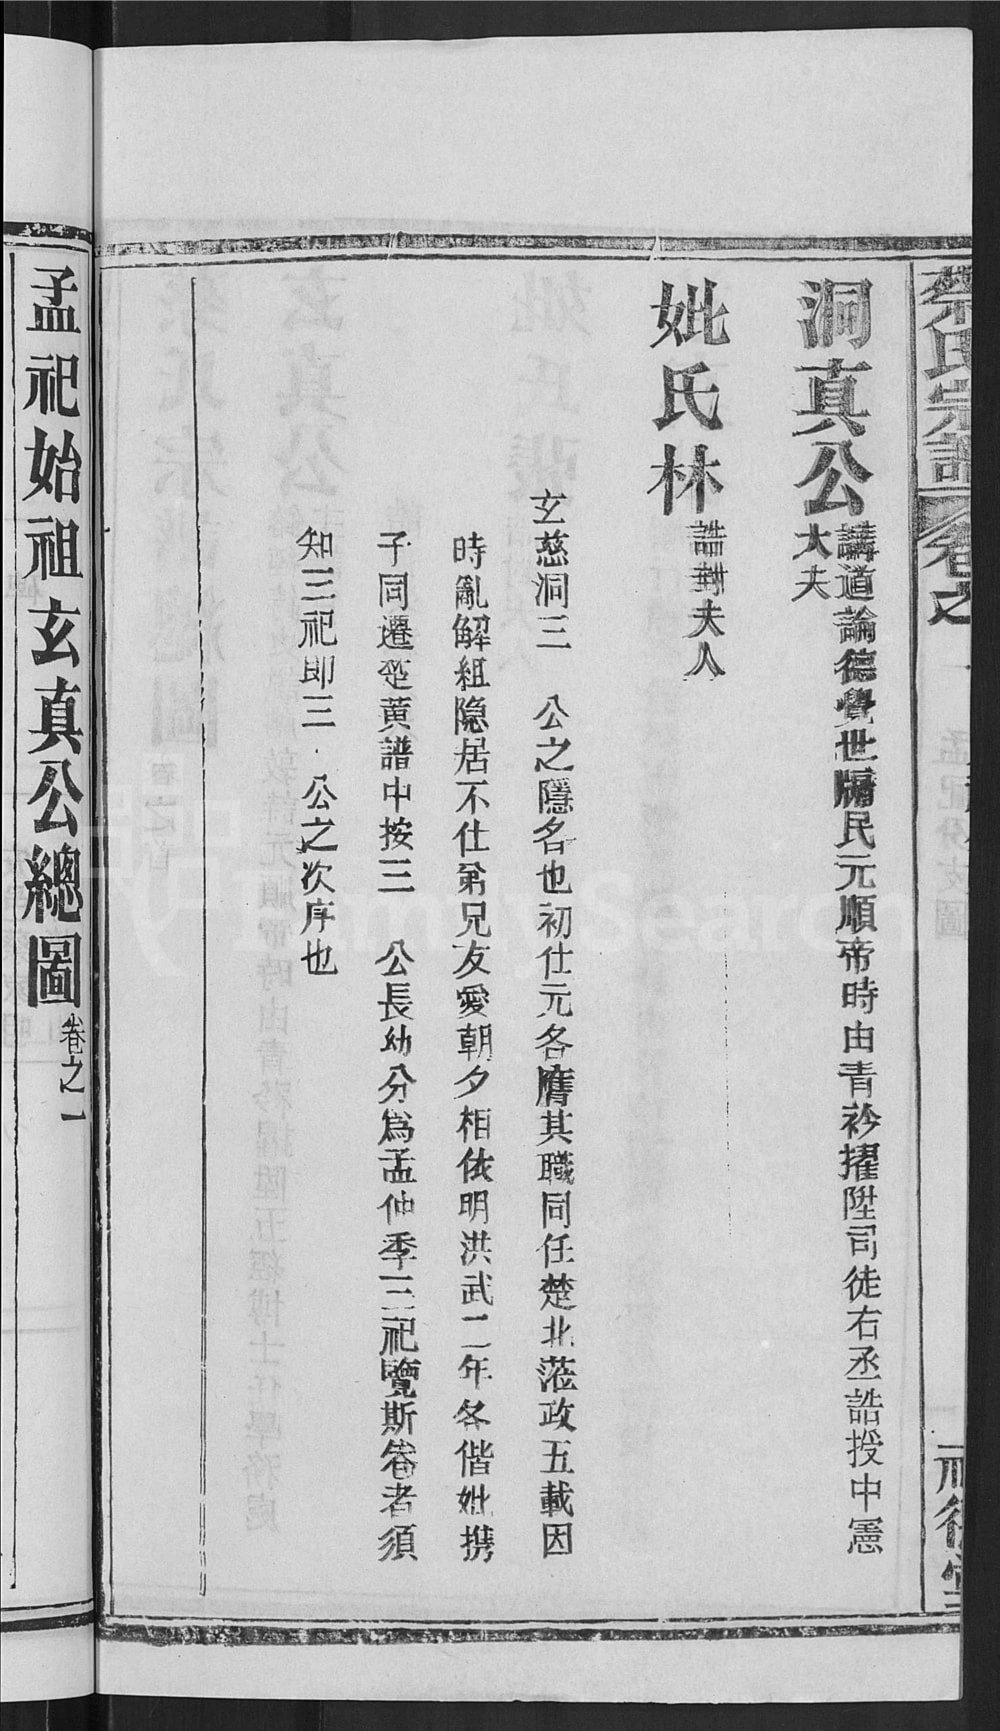 蔡氏宗譜 卷之一
洞真公 講道論德覺世牖民元順帝時由青衿擢陞司徒右丞誥授中憲
大夫
妣氏林 誥封夫人
玄慈洞三 公之隱名也初仕元各膺其職同任楚北蒞政五載因
時亂解組隐居不仕弟兄友愛朝夕相依明洪武二年各偕妣携
子同遷楚黄譜中按三 公長幼分爲孟仲季三祀覽斯卷者須
知三祀即三 公之次序也
孟祀始祖玄真公總圖 卷之一